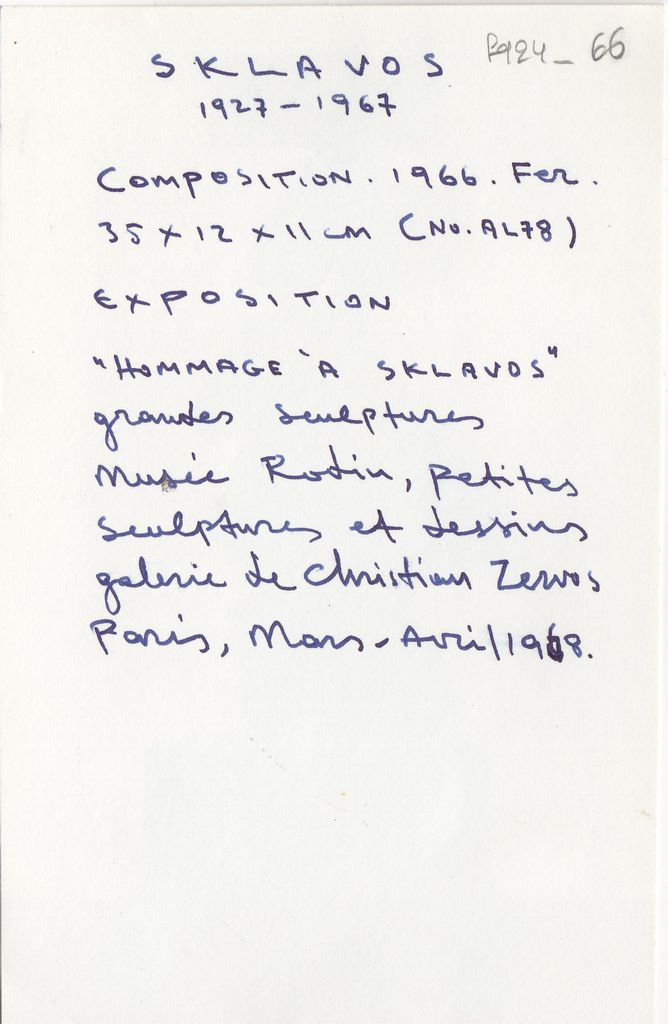 SKLAVOS
66
1927-1967
COMPOSITION. 1966. Fer.
35 x 12 x 11 cm (No. AL78)
EXPOSITION
"HOMMAGE À SKLAVOS"
grandes sculptures
Musée Rodin, petites
sculptures et dessins
galerie de Christian Zervos
Paris, Mars-Avril 1968.